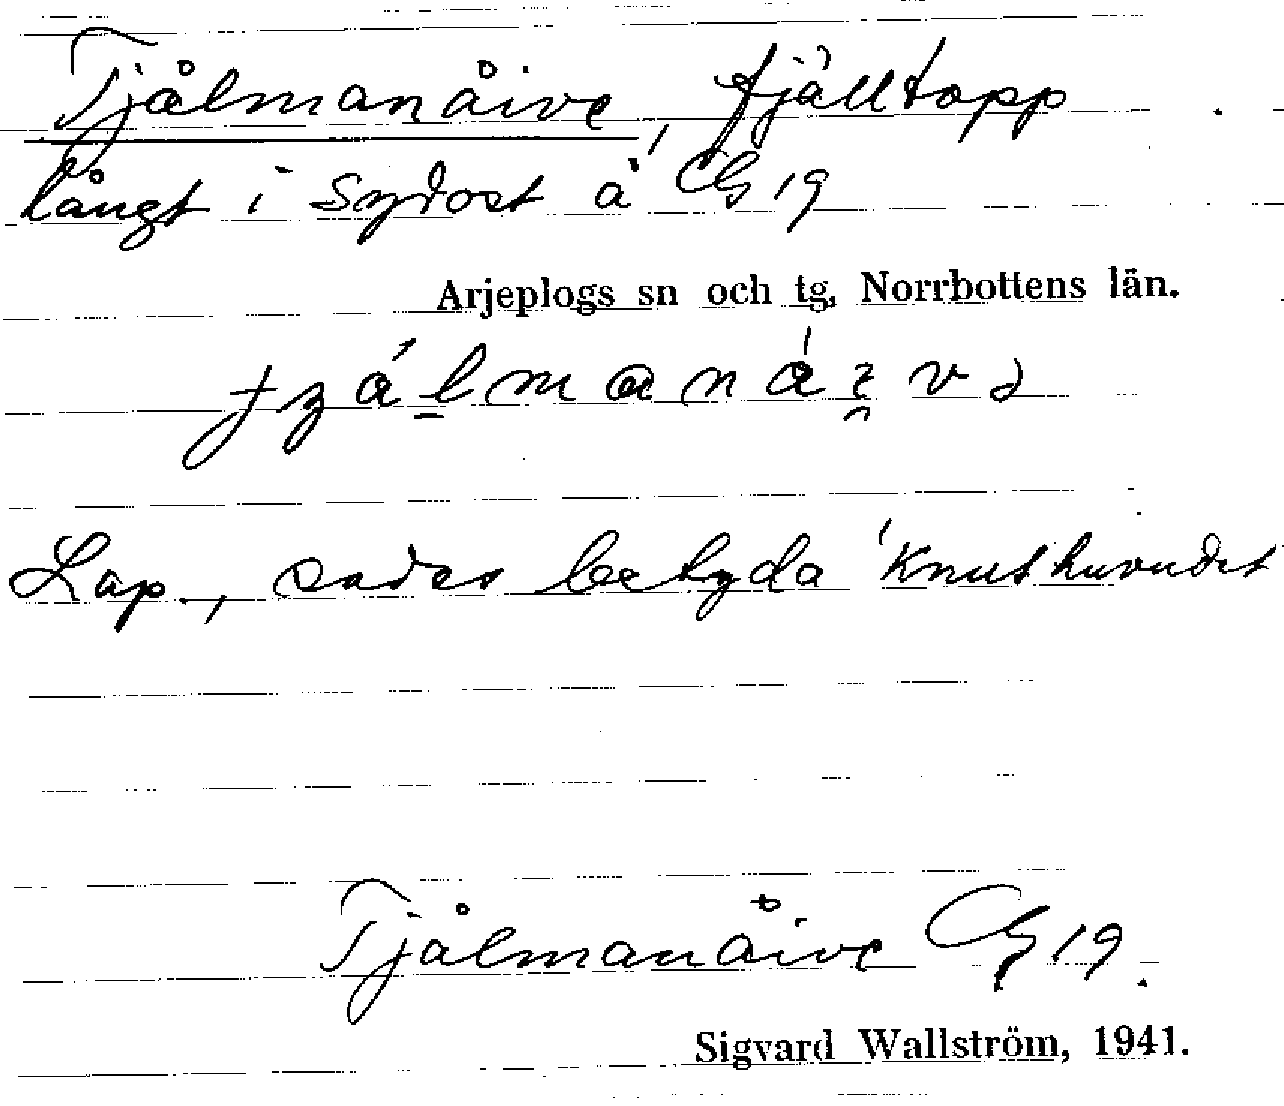 Tjålmanåive, fjälltopp
långt i sydost å CG 19
Arjeplogs sn och tg, Norrbottens län.
Lap., sades betyda 'Knuthuvudet
Tjålmanåive CG 19.
Sigvard Wallström, 1941.